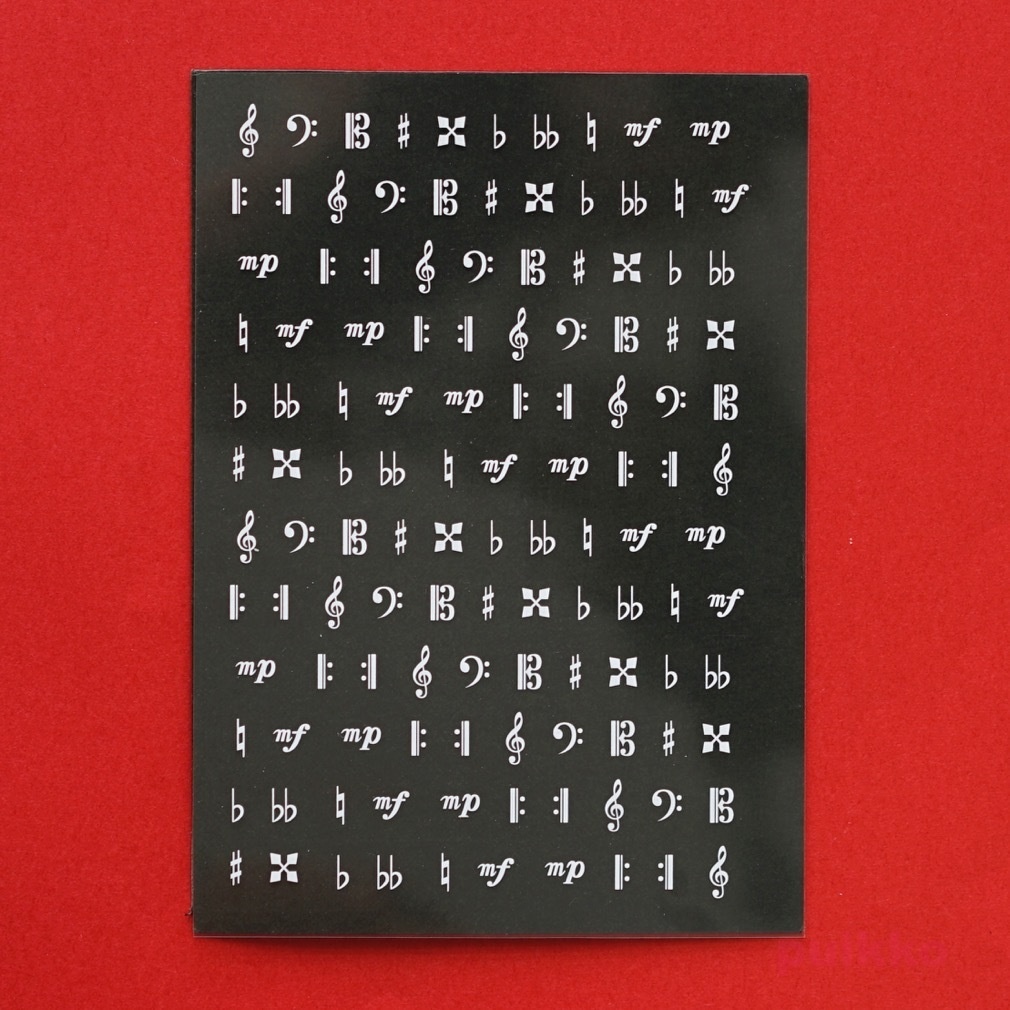 𝄞 𝄢 𝄡 ♯ 𝄪 ♭ 𝄫 ♮ mf mp
𝄆 𝄇 𝄞 𝄢 𝄡 ♯ 𝄪 ♭ 𝄫 ♮ mf
mp 𝄆 𝄇 𝄞 𝄢 𝄡 ♯ 𝄪 ♭ 𝄫
♮ mf mp 𝄆 𝄇 𝄞 𝄢 𝄡 ♯ 𝄪
♭ 𝄫 ♮ mf mp 𝄆 𝄇 𝄞 𝄢 𝄡
♯ 𝄪 ♭ 𝄫 ♮ mf mp 𝄆 𝄇 𝄞
𝄞 𝄢 𝄡 ♯ 𝄪 ♭ 𝄫 ♮ mf mp
𝄆 𝄇 𝄞 𝄢 𝄡 ♯ 𝄪 ♭ 𝄫 ♮ mf
mp 𝄆 𝄇 𝄞 𝄢 𝄡 ♯ 𝄪 ♭ 𝄫
♮ mf mp 𝄆 𝄇 𝄞 𝄢 𝄡 ♯ 𝄪
♭ 𝄫 ♮ mf mp 𝄆 𝄇 𝄞 𝄢 𝄡
♯ 𝄪 ♭ 𝄫 ♮ mf mp 𝄆 𝄇 𝄞
puikko